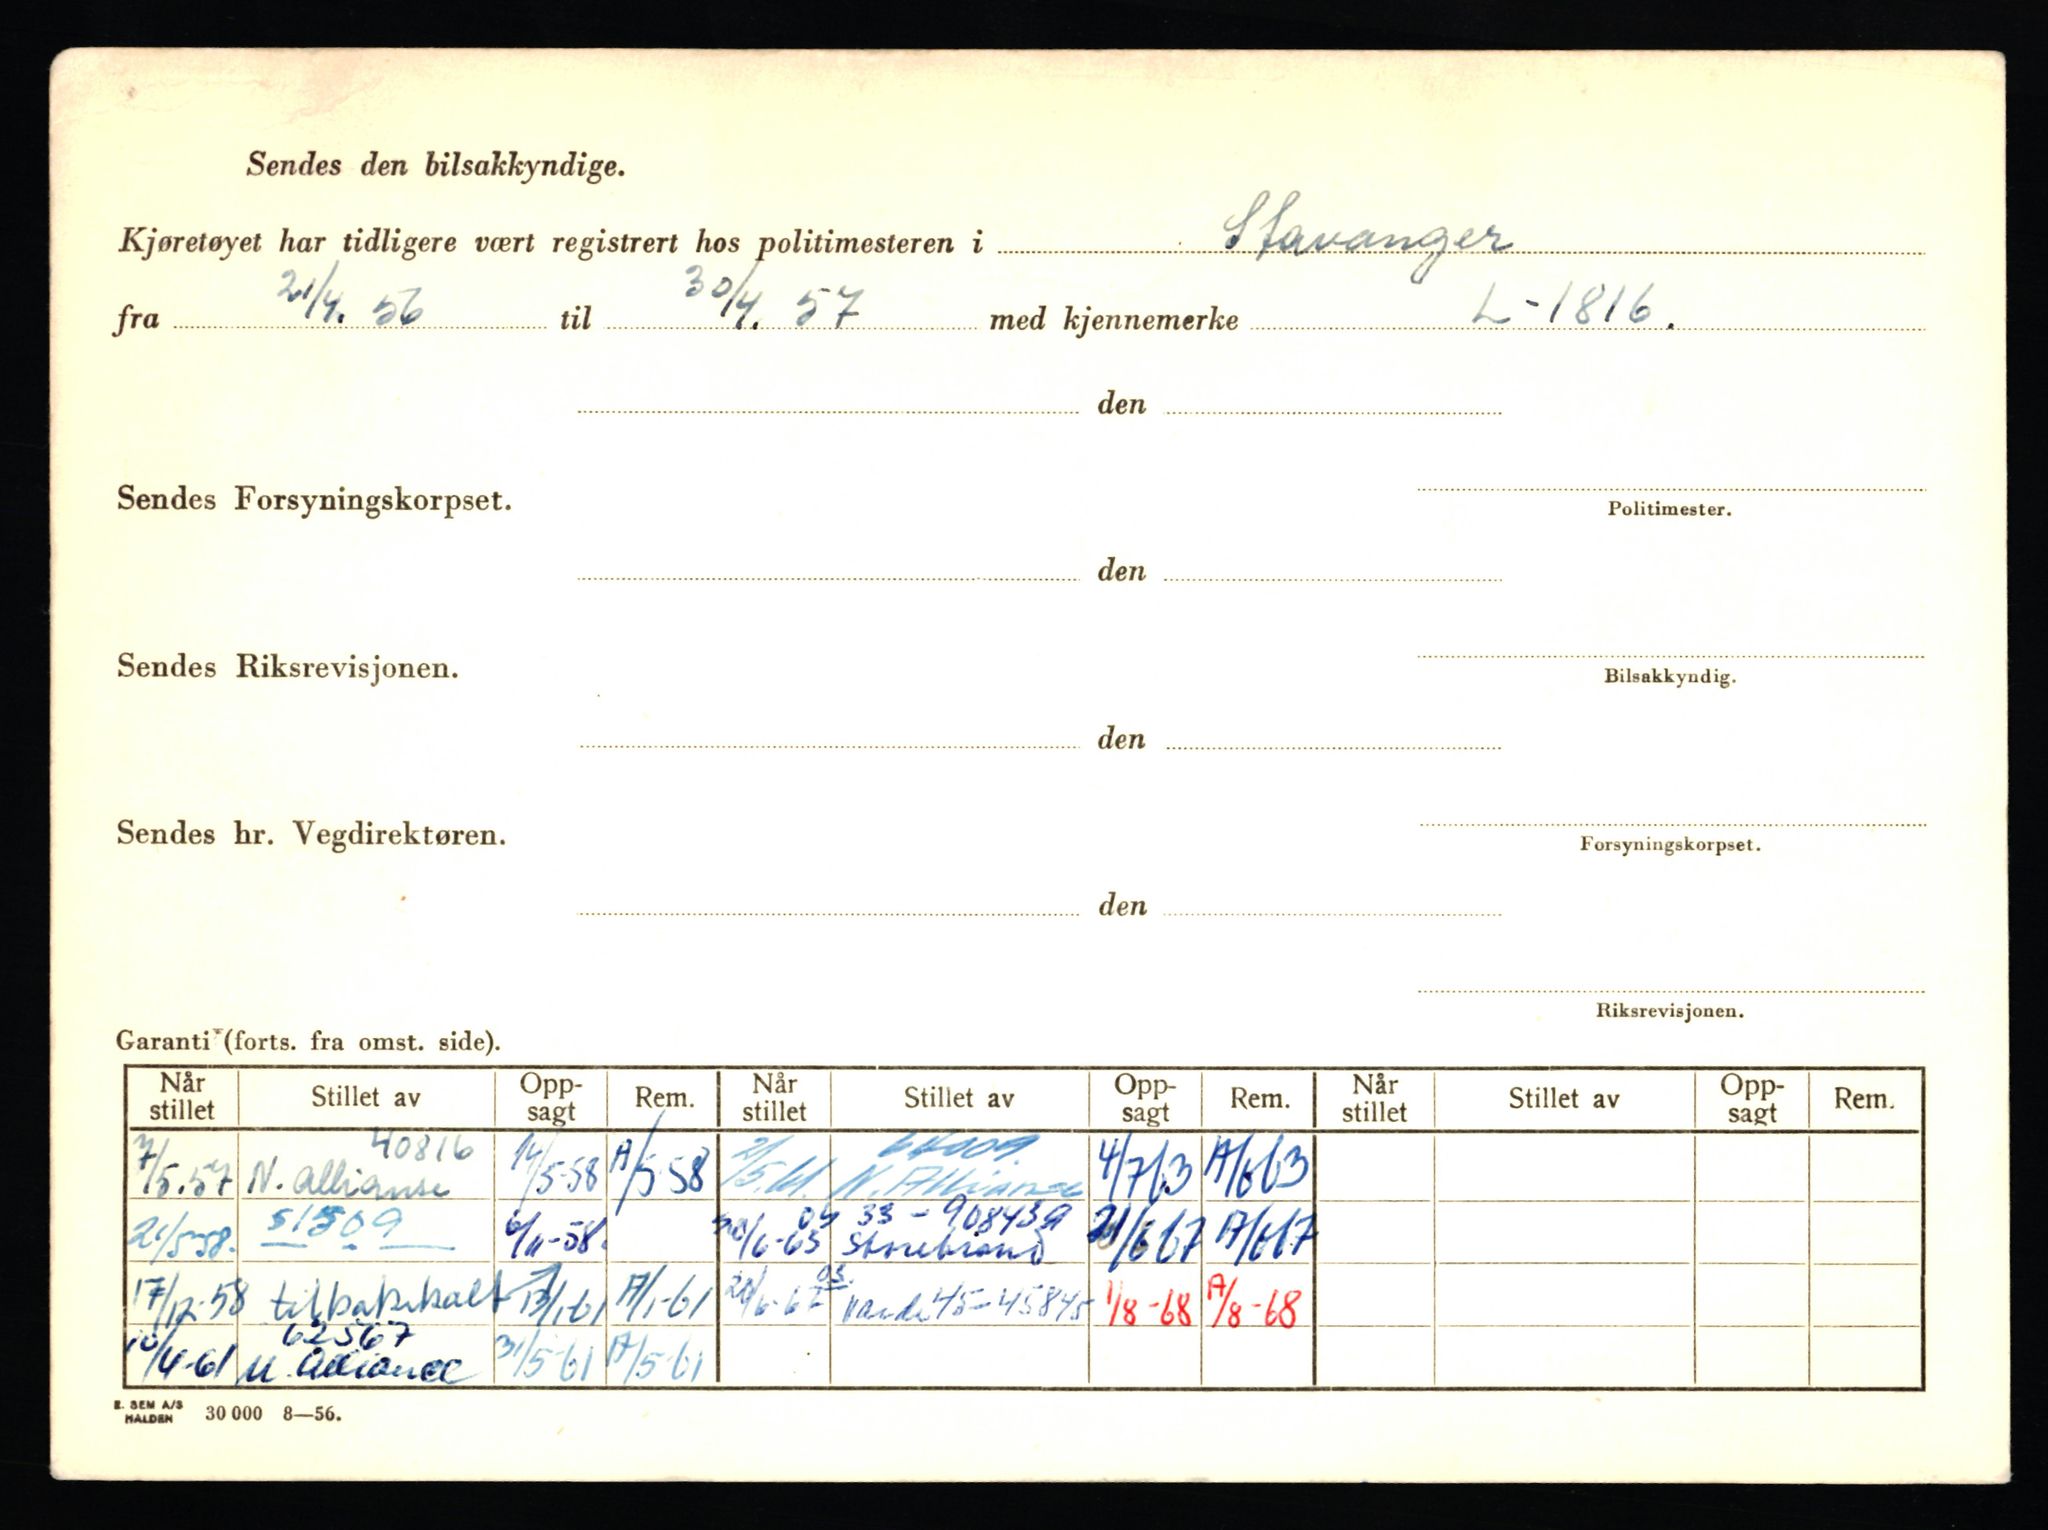 Sendes den bilsakkyndige.
Kjøretøyet har tidligere vært registrert hos politimesteren i Stavanger
fra 21/4. 56 til 30/4. 57 med kjennemerke L-1816.
den
Sendes Forsyningskorpset.
Politimester.
den
Sendes Riksrevisjonen.
Bilsakkyndig.
den
Sendes hr. Vegdirektøren.
Forsyningskorpset.
den
Riksrevisjonen.
Garanti (forts. fra omst. side).
Når stillet Stillet av Opp-sagt Rem. Når stillet Stillet av Opp-sagt Rem. Når stillet Stillet av Opp-sagt Rem.
7/5.57 40816 N. Allianse 14/5-58 A/5-58 2/5.61 N. Alliance 4/7 63 A/6 63
21/5-58. 51509 6/11-58. 6-63 03 33-908439 Storebrand 21/6 67 A/6 67
17/12-58 tilbakekalt 13/1-61 A/1-61 03 45-45845 1/8-68 A/8-68
10/4-61 62567 N. Alliance 31/5-61 A/5-61
E. SEM A/S HALDEN 30 000 8—56.